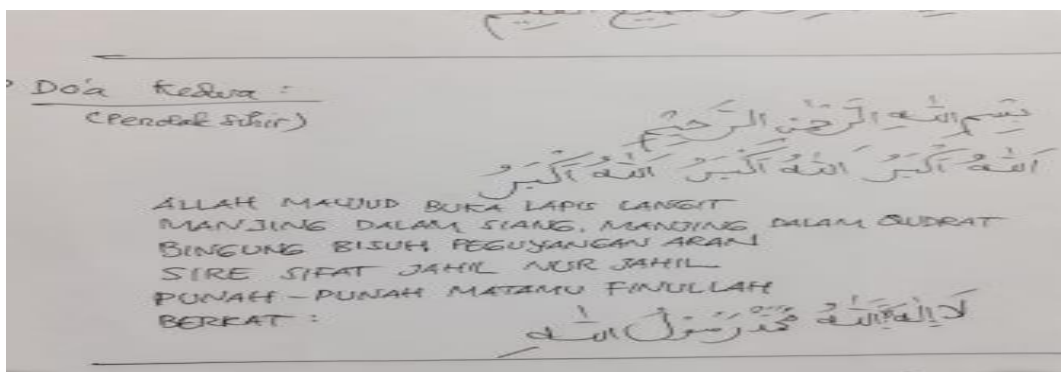 Do'a Kedua :
(Penolak Sihir)
بِسْمِ اللّٰهِ الرَّحْمٰنِ الرَّحِيْمِ
اَللّٰهُ اَكْبَرُ اَللّٰهُ اَكْبَرُ اَللّٰهُ اَكْبَرُ
ALLAH MAUJUD BUKA LAPIS LANGIT
MANJING DALAM SIANG, MANJING DALAM QUDRAT
BINGUNG BISUH PEGUYANGAN ARAN
SIRE SIFAT JAHIL NUR JAHIL
PUNAH-PUNAH MATAMU FINULLAH
BERKAT : لَا اِلٰهَ اِلَّا اللّٰهُ مُحَمَّدٌ رَسُوْلُ اللّٰهِ